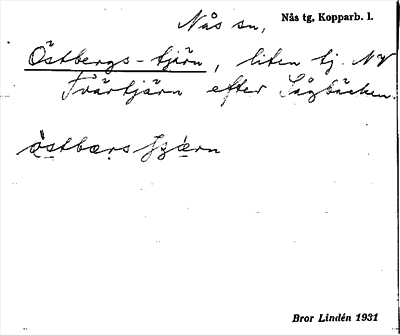 Nås sn, Nås tg, Kopparb. l.
Östbergs-tjärn, liten tj. NV
Tvärtjärn efter Sågbäcken.
Bror Lindén 1931